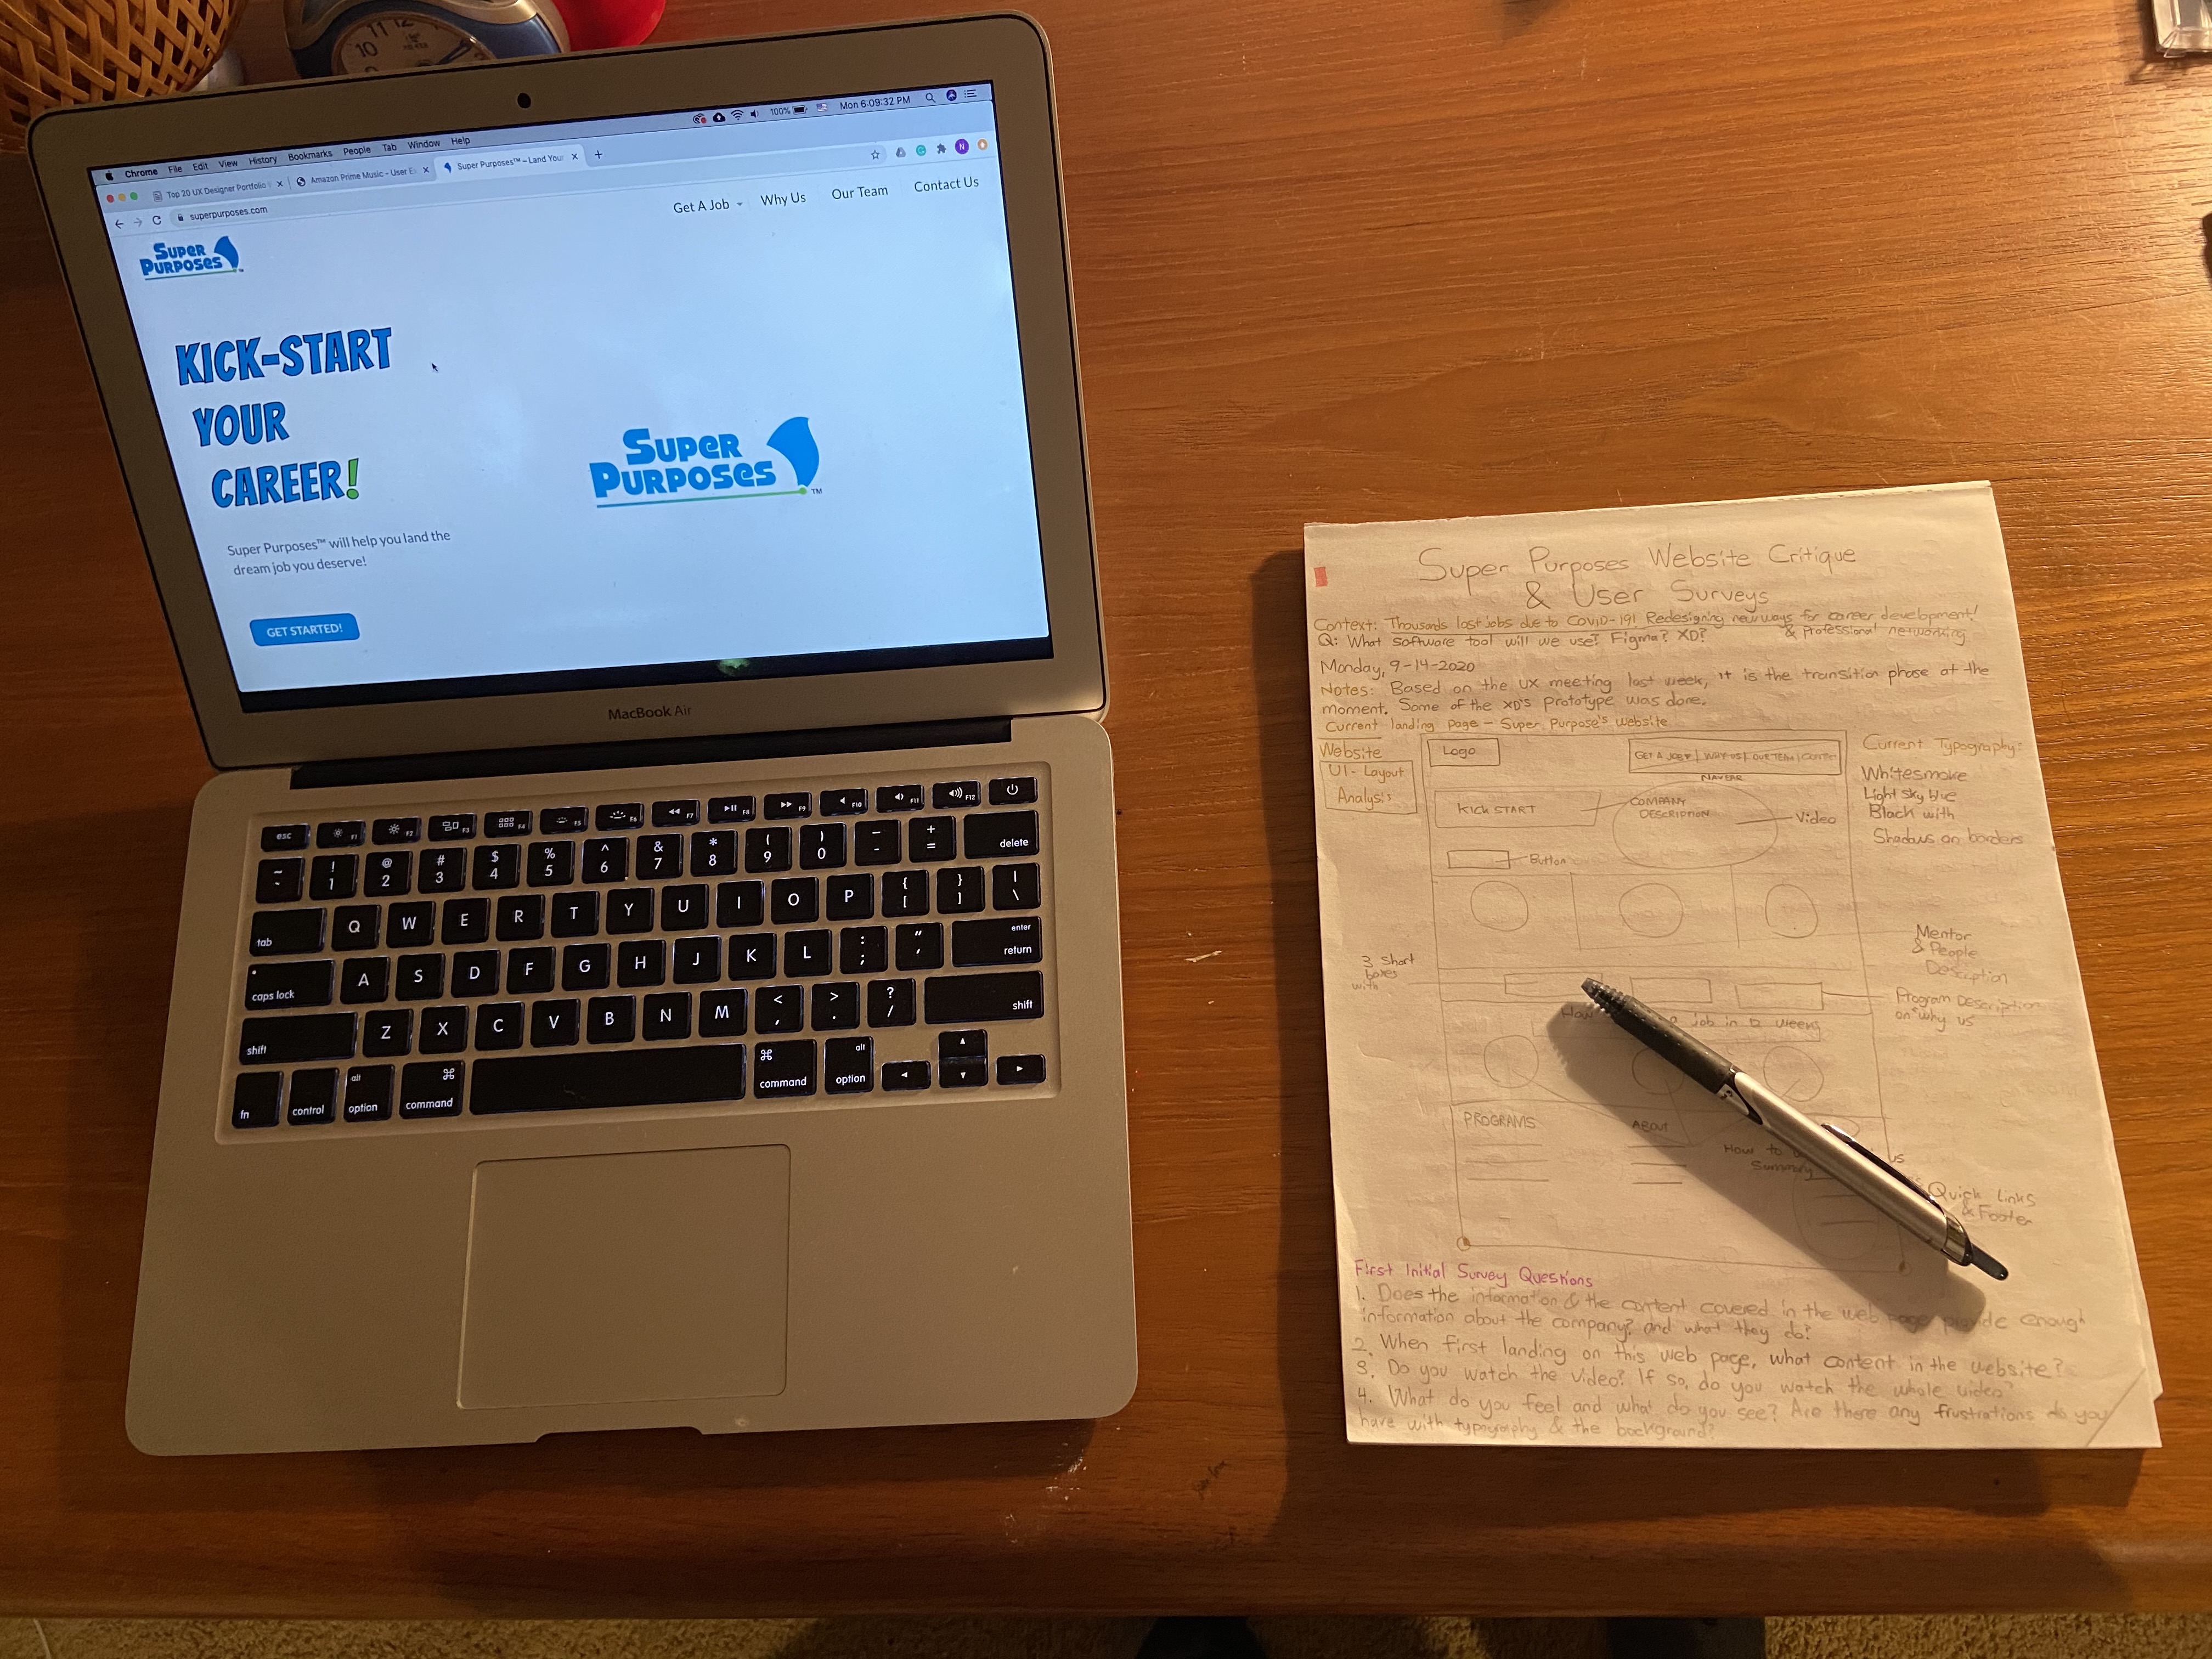 11 12
10
Chrome File Edit View History Bookmarks People Tab Window Help
100% Mon 6:09:32 PM
Top 20 UX Designer Portfolio
Amazon Prime Music - User E
Super Purposes™ – Land You
superpurposes.com
N
Super Purposes™
Get A Job Why Us Our Team Contact Us
KICK-START
YOUR
CAREER!
Super Purposes™
Super Purposes™ will help you land the
dream job you deserve!
GET STARTED!
MacBook Air
esc F1 F2 F3 F4 F5 F6 F7 F8 F9 F10 F11 F12
~ ` ! 1 @ 2 # 3 $ 4 % 5 ^ 6 & 7 * 8 ( 9 ) 0 _ - + = delete
tab Q W E R T Y U I O P { [ } ] | \
caps lock A S D F G H J K L : ; " ' enter return
shift Z X C V B N M < , > . ? / shift
fn control alt option ⌘ command ⌘ command alt option
Super Purposes Website Critique
& User Surveys
Context: Thousands lost jobs due to COVID-19! Redesigning new ways for career development!
& Professional networking
Q: What software tool will we use? Figma? XD?
Monday, 9-14-2020
Notes: Based on the UX meeting last week, it is the transition phase at the
moment. Some of the XD'S prototype was done.
Current landing page – Super Purpose's website
Website
UI - Layout
Analysis
Logo
GET A JOB▾ | WHY US | OUR TEAM |
NAVBAR
KICK START
COMPANY
DESCRIPTION
Video
Button
Current Typography:
Whitesmoke
Light sky blue
Black with
Shadows on borders
Mentor
& People
Description
3 Short
boxes
with
Program Description
on "why us"
How
a job in 12 weeks
PROGRAMS
ABOUT
How to
Summary
us
Quick Links
& Footer
First Initial Survey Questions
1. Does the information & the content covered in the web page provide enough
information about the company? and what they do?
2. When first landing on this web page, what content in the website?
3. Do you watch the video? If so, do you watch the whole video?
4. What do you feel and what do you see? Are there any frustrations do you
have with typography & the background?